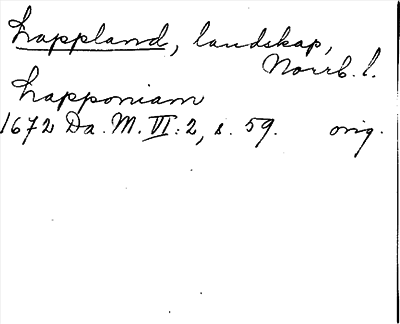 Lappland, landskap,
Norrb. l.
Lapponiam
1672 Da. M. VI: 2, s. 59. orig.